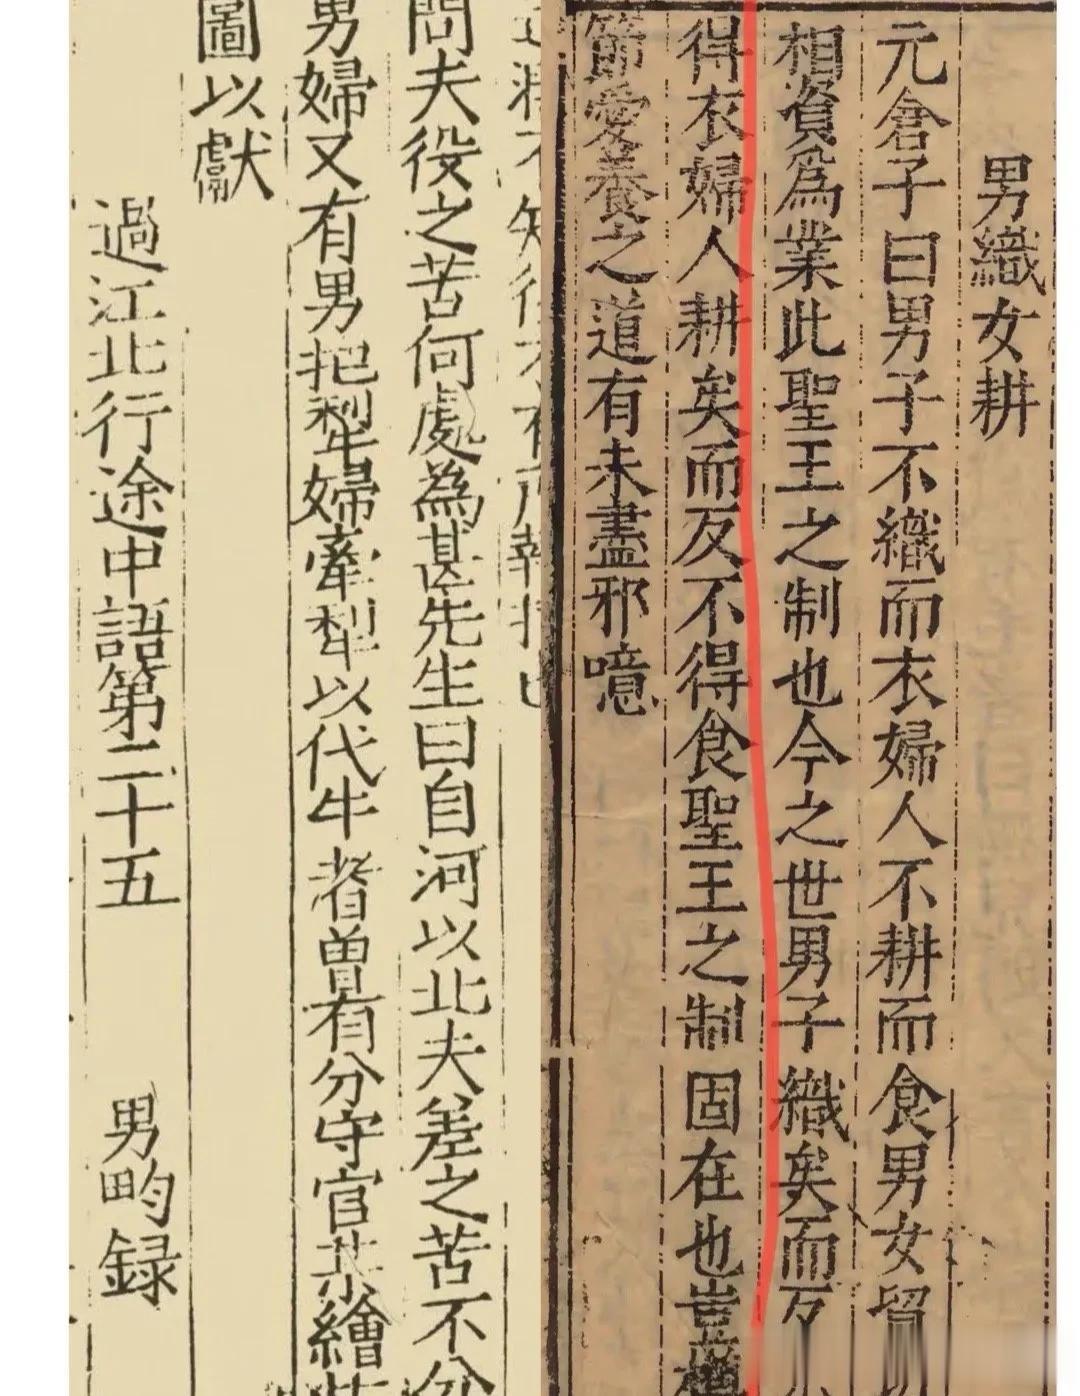 男織女耕
元倉子曰男子不織而衣婦人不耕而食男女貿
相資為業此聖王之制也今之世男子織矣而反
得衣婦人耕矣而反不得食聖王之制固在也豈
節愛養之道有未盡邪噫
問夫役之苦何處為甚先生曰自河以北夫差之苦不分
男婦又有男把犁婦牽犁以代牛者曾有分守官某繪
圖以獻
過江北行途中語第二十五 男畇録